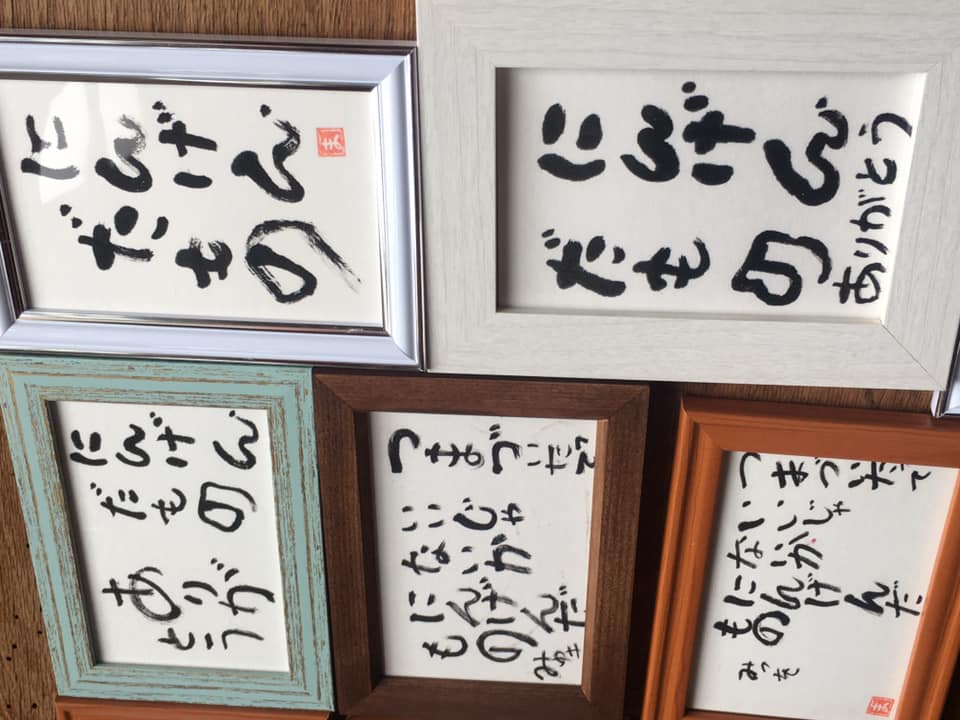 にんげん
だもの
ま
にんげん
だもの
ありがとう
にんげん
だもの
ありが
とう
つまづいたって
いいじゃ
ないか
にんげんだ
もの
みゆき
つまづいたって
いいじゃ
ないか
にんげんだ
もの
みつを